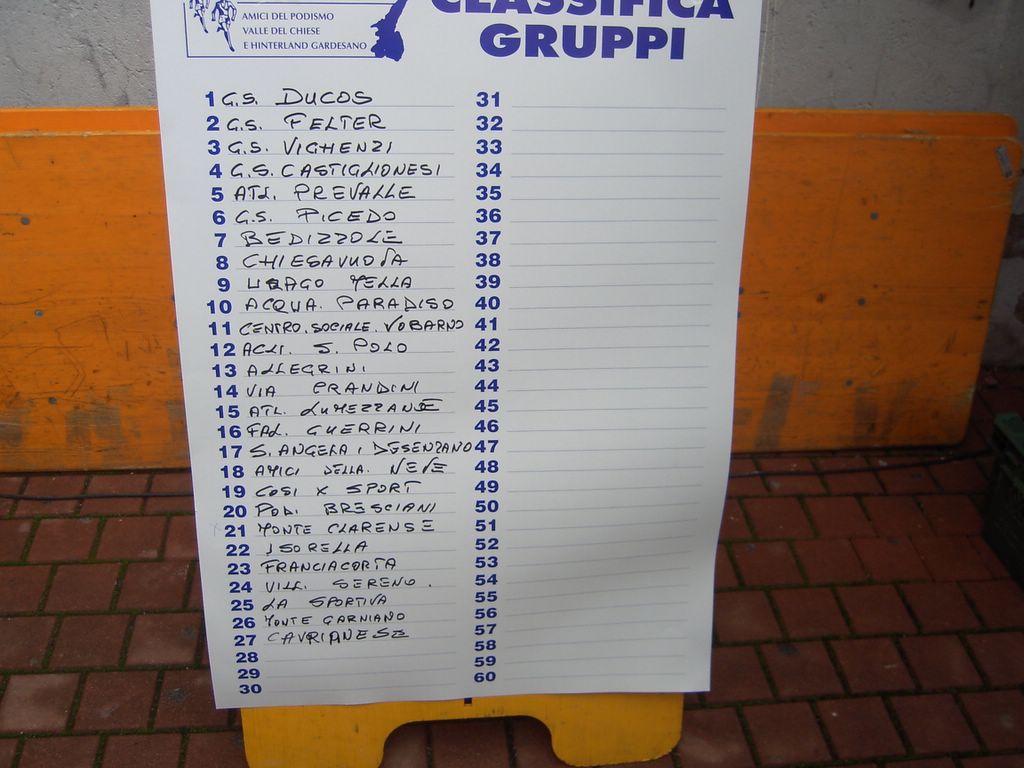 CLASSIFICA
GRUPPI
AMICI DEL PODISMO
VALLE DEL CHIESE
E HINTERLAND GARDESANO
1 G.S. DUCOS
2 G.S. FELTER
3 G.S. VIGHENZI
4 G.S. CASTIGLIONESI
5 ATL. PREVALLE
6 G.S. PICEDO
7 BEDIZZOLE
8 CHIESAVUOVA
9 URAGO MELLA
10 ACQUA. PARADISO
11 CENTRO. SOCIALE. VOBARNO
12 ACLI. S. POLO
13 ALLEGRINI
14 VIA PRANDINI
15 ATL. LUMEZZANE
16 FAL. GUERRINI
17 S. ANGELA, DESENZANO
18 AMICI DELLA. NEVE
19 COSI X SPORT
20 POD. BRESCIANI
21 MONTE CLARENSE
22 ISORELLA
23 FRANCIACORTA
24 VILL. SERENO.
25 LA SPORTIVA
26 MONTE GARNIANO
27 CAVRIANESE
28
29
30
31
32
33
34
35
36
37
38
39
40
41
42
43
44
45
46
47
48
49
50
51
52
53
54
55
56
57
58
59
60